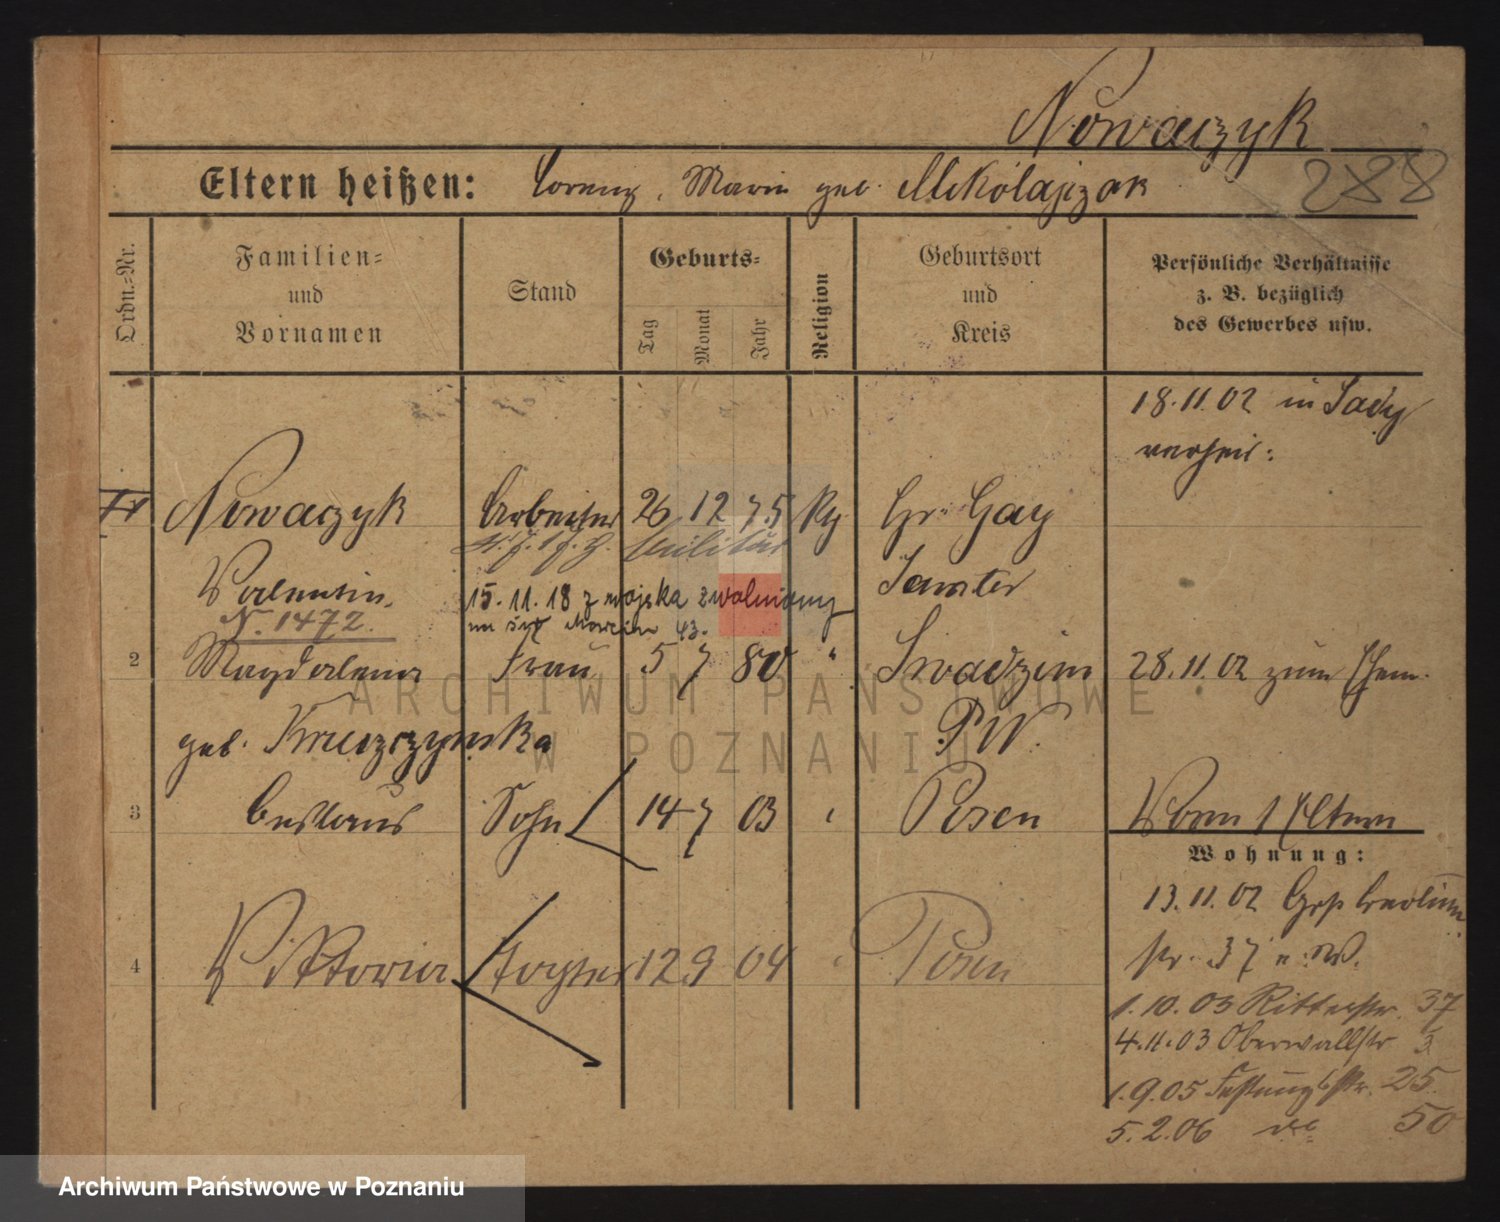 Nowaczyk
Eltern heißen: Lorenz, Marie geb. Mikolajczak
288
Ordn.-Nr.
Familien- und Vornamen
Stand
Geburts-
Tag
Monat
Jahr
Religion
Geburtsort und Kreis
Persönliche Verhältnisse z. B. bezüglich des Gewerbes usw.
18.11.02 in Sady
verheir:
Nowaczyk Arbeiter 26 12 75 Kg Gr. Gay
Militär
Valentin Samter
N. 1472.
15.11.18 z wojska zwolniony
Marcin 43.
2 Magdalena Frau 5 7 80 " Swadzim 28.11.02 zum Ehem.
geb. P W.
3 Sohn 14 7 03 Posen Eltern
Wohnung:
13.11.02
str. 37
4 Viktoria Tochter 12 9 04 Posen
1.10.03 Ritterstr. 37
4.11.03 Oberwallstr 3
1.9.05 Festungsstr. 25
5.2.06 do 50
ARCHIWUM PAŃSTWOWE
W POZNANIU
Archiwum Państwowe w Poznaniu